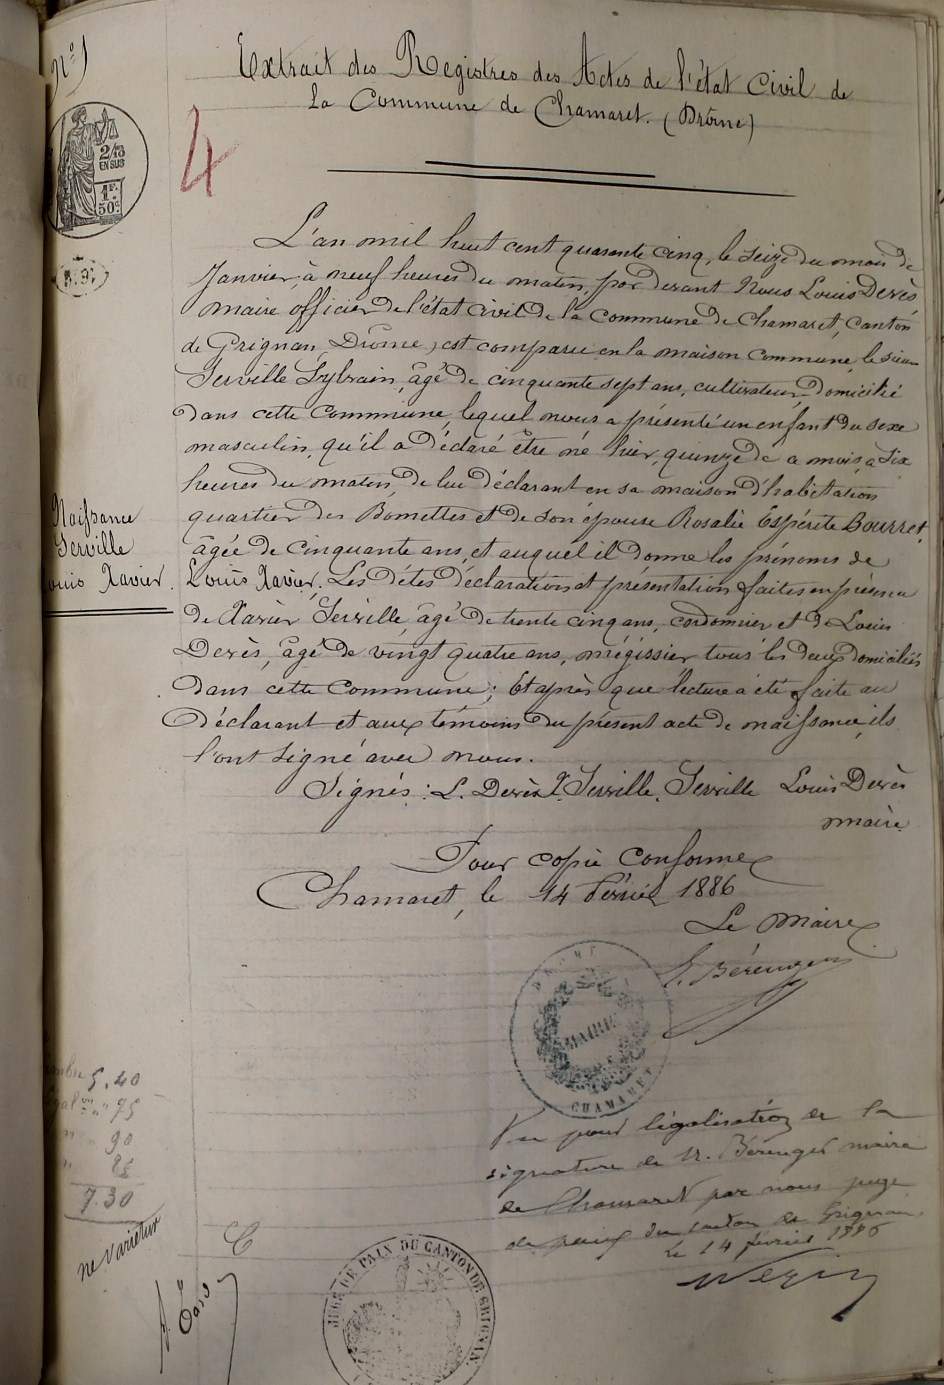 N° 1
Extrait des Registres des Actes de l'état Civil de
La Commune de Chamaret. (Drôme)
2/10
EN SUS
1F.
50c.
4
L'an mil huit cent quarante cinq, le seize du mois de
Janvier, à neuf heures du matin, par devant Nous Louis Devès
maire officier de l'état Civil de la Commune de Chamaret, Canton
de Grignan, Drôme, est comparu en la maison Commune, le sieur
Serville Sylvain, âgé de cinquante sept ans, cultivateur, domicilié
dans cette Commune, lequel nous a présenté un enfant du sexe
masculin, qu'il a déclaré être né hier, quinze de ce mois, à six
heures du matin, de lui déclarant en sa maison d'habitation
quartier des Bomettes et de son épouse Rosalie Espérite Bourret,
âgée de cinquante ans, et auquel il donne les prénoms de
Louis Xavier. Les dites déclaration et présentation faites en présence
de Xavier Serville, âgé de trente cinq ans, cordonnier et de Louis
Devès, âgé de vingt quatre ans, mégissier tous les deux domiciliés
dans cette Commune; Et après que lecture a été faite au
déclarant et aux témoins du présent acte de naissance, ils
l'ont signé avec nous.
Naissance
Serville
Louis Xavier.
Signés: L. Devès X. Serville. Serville Louis Devès
maire
Pour copie conforme
Chamaret, le 14 Février 1886
Le Maire
Bérenger
DRÔME
MAIRIE
CHAMARET
5.40
75
90
25
7.30
ne varietur
Vu pour légalisation de la
signature de M. Bérenger maire
de Chamaret par nous juge
de paix du canton de Grignan
le 14 février 1886
JUGE DE PAIX DU CANTON DE GRIGNAN